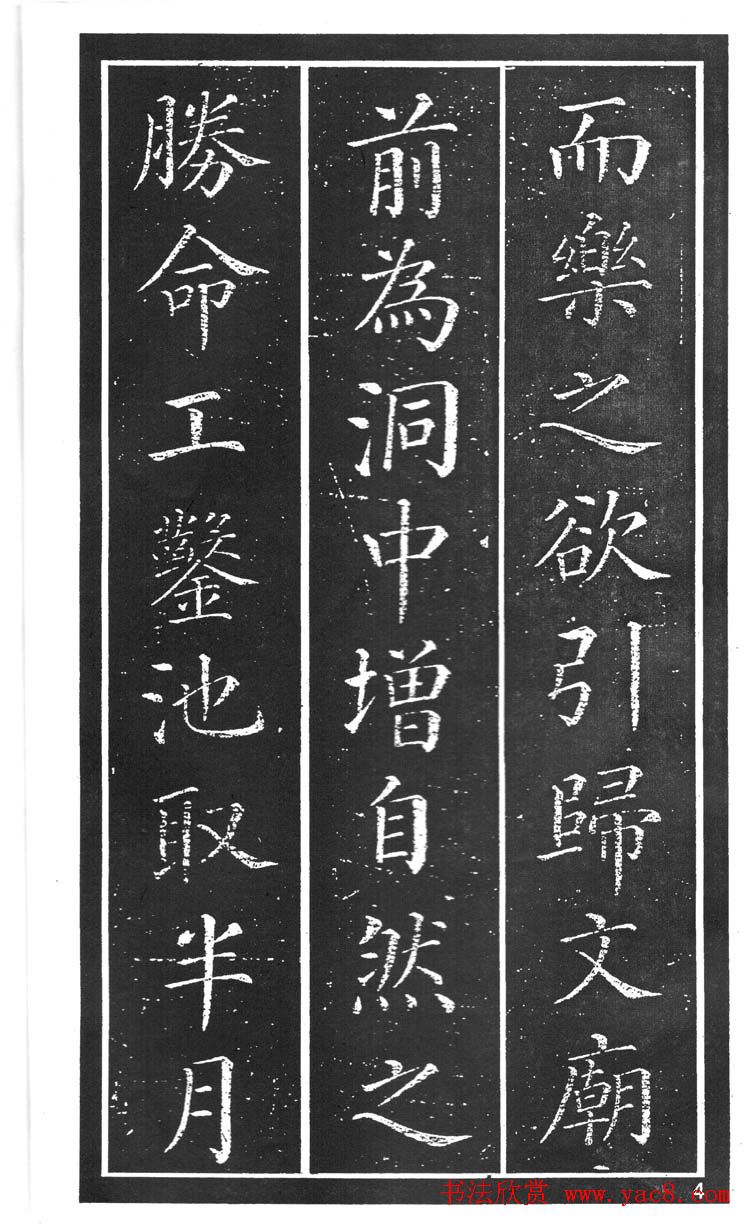 而樂之欲引歸文廟
前為洞中增自然之
勝命工鑿池取半月
4
书法欣赏 www.yac8.com